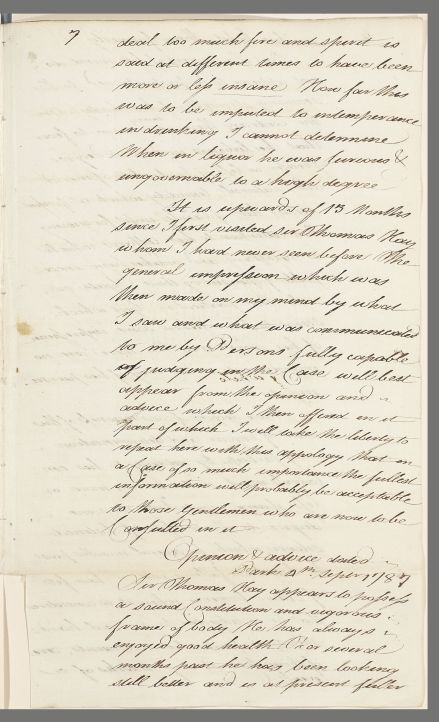 7
deal too much fire and spirit is
said at different times to have been
more or less insane How far this
was to be imputed to intemperance
in drinking I cannot determine
When in liquor he was furious &
ungovernable to a high degree
It is upwards of 13 Months
since I first visited Sir Thomas Hay
whom I had never seen before The
general impression which was
then made on my mind by what
I saw and what was communicated
to me by Persons fully capable
of judging in the Case will best
appear from the opinion and
advice which I then offered in it
Part of which I will take the liberty to
repeat here with this appology that in
a Case of so much importance the fullest
information will probably be acceptable
to those Gentlemen who are now to be
Consulted in it
Opinion & advice dated
Park 4th Septr 1787
Sir Thomas Hay appears to possess
a sound Constitution and vigorous
frame of body He has always
enjoyed good health For several
months past he has been looking
still better and is at present fuller